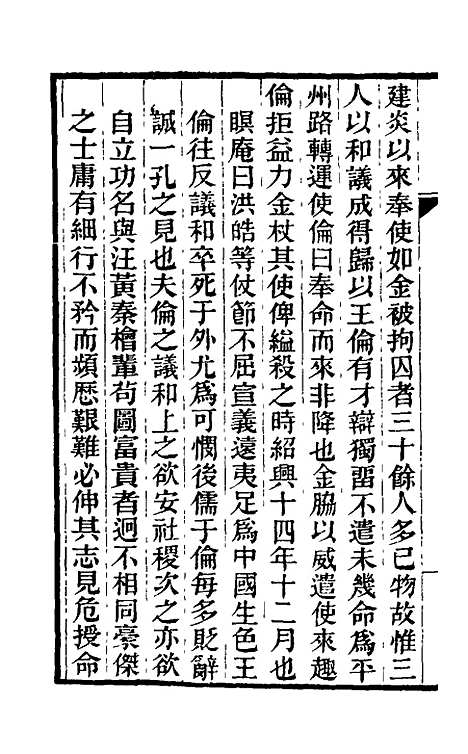 建炎以來奉使如金被拘囚者三十餘人多已物故惟三
人以和議成得歸以王倫有才辯獨畱不遣未幾命爲平
州路轉運使倫曰奉命而來非降也金脇以威遣使來趣
倫拒益力金杖其使俾縊殺之時紹興十四年十二月也
瞑庵曰洪皓等仗節不屈宣義遠夷足爲中國生色王
倫往反議和卒死于外尤爲可憫後儒于倫每多貶辭
誠一孔之見也夫倫之議和上之欲安社稷次之亦欲
自立功名與汪黃秦檜輩苟圖富貴者迥不相同豪傑
之士庸有細行不矜而頻歴艱難必伸其志見危授命